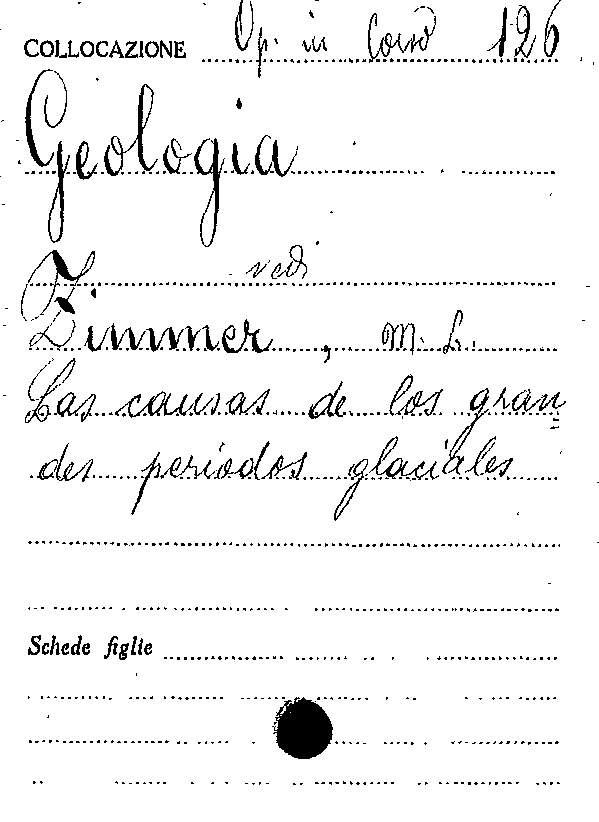 COLLOCAZIONE Op. in Corso 126
Geologia
vedi
Zimmer, M. L.
Las causas de los gran=
des periodos glaciales
Schede figlie